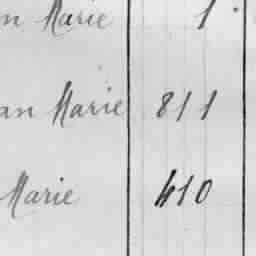 n Marie 1
an Marie 811
Marie 410